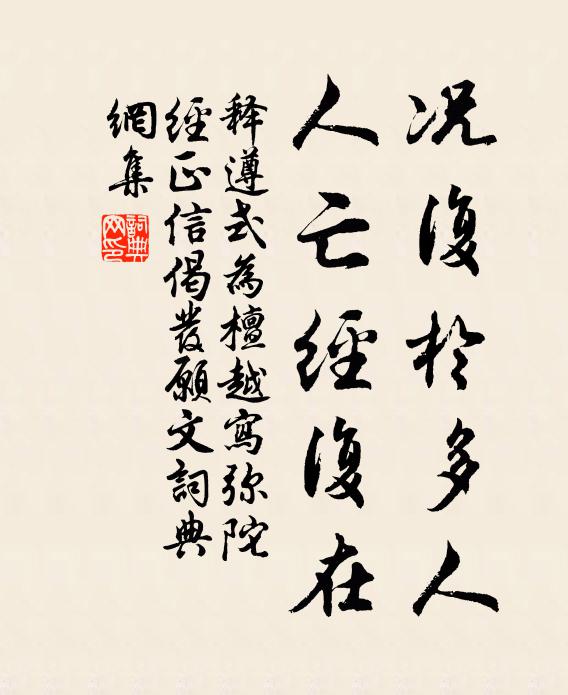 况復於多人
人亡經復在
释遵式為檀越寫弥陀
經正信偈發願文詞典
網集
詞典
网印